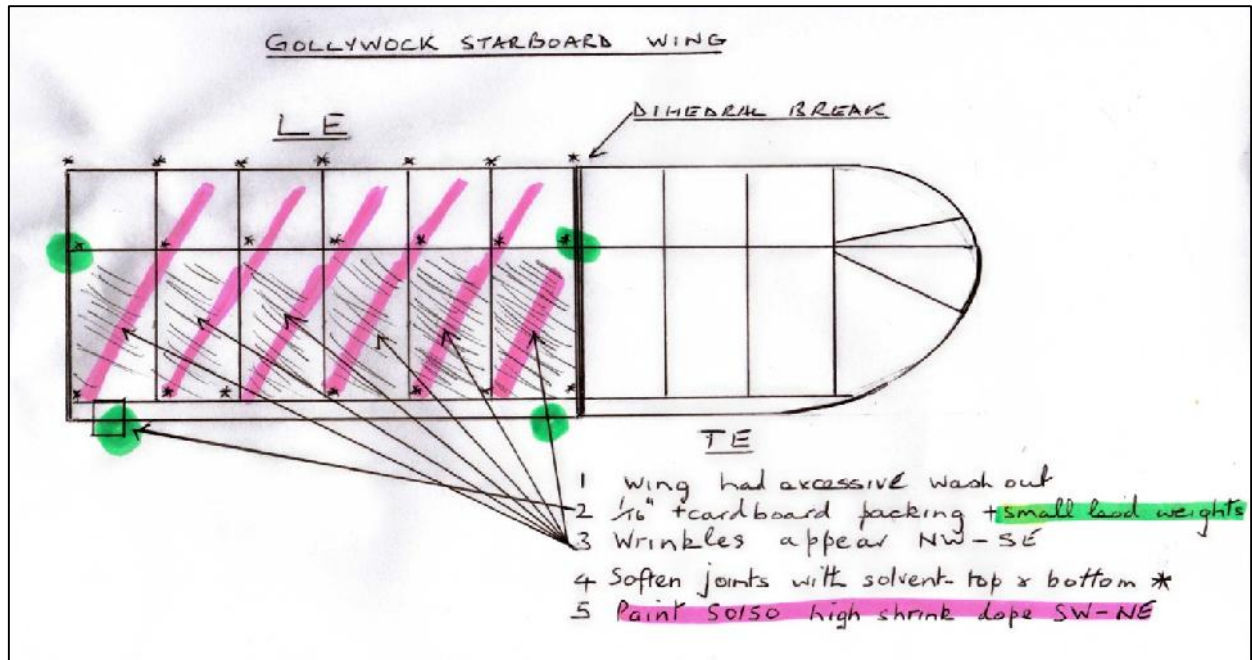 GOLLYWOCK STARBOARD WING
DIHEDRAL BREAK
LE
TE
1 Wing had excessive wash out
2 1/16" + cardboard packing + small lead weights
3 Wrinkles appear NW-SE
4 Soften joints with solvent - top & bottom *
5 Paint 50/50 high shrink dope SW-NE